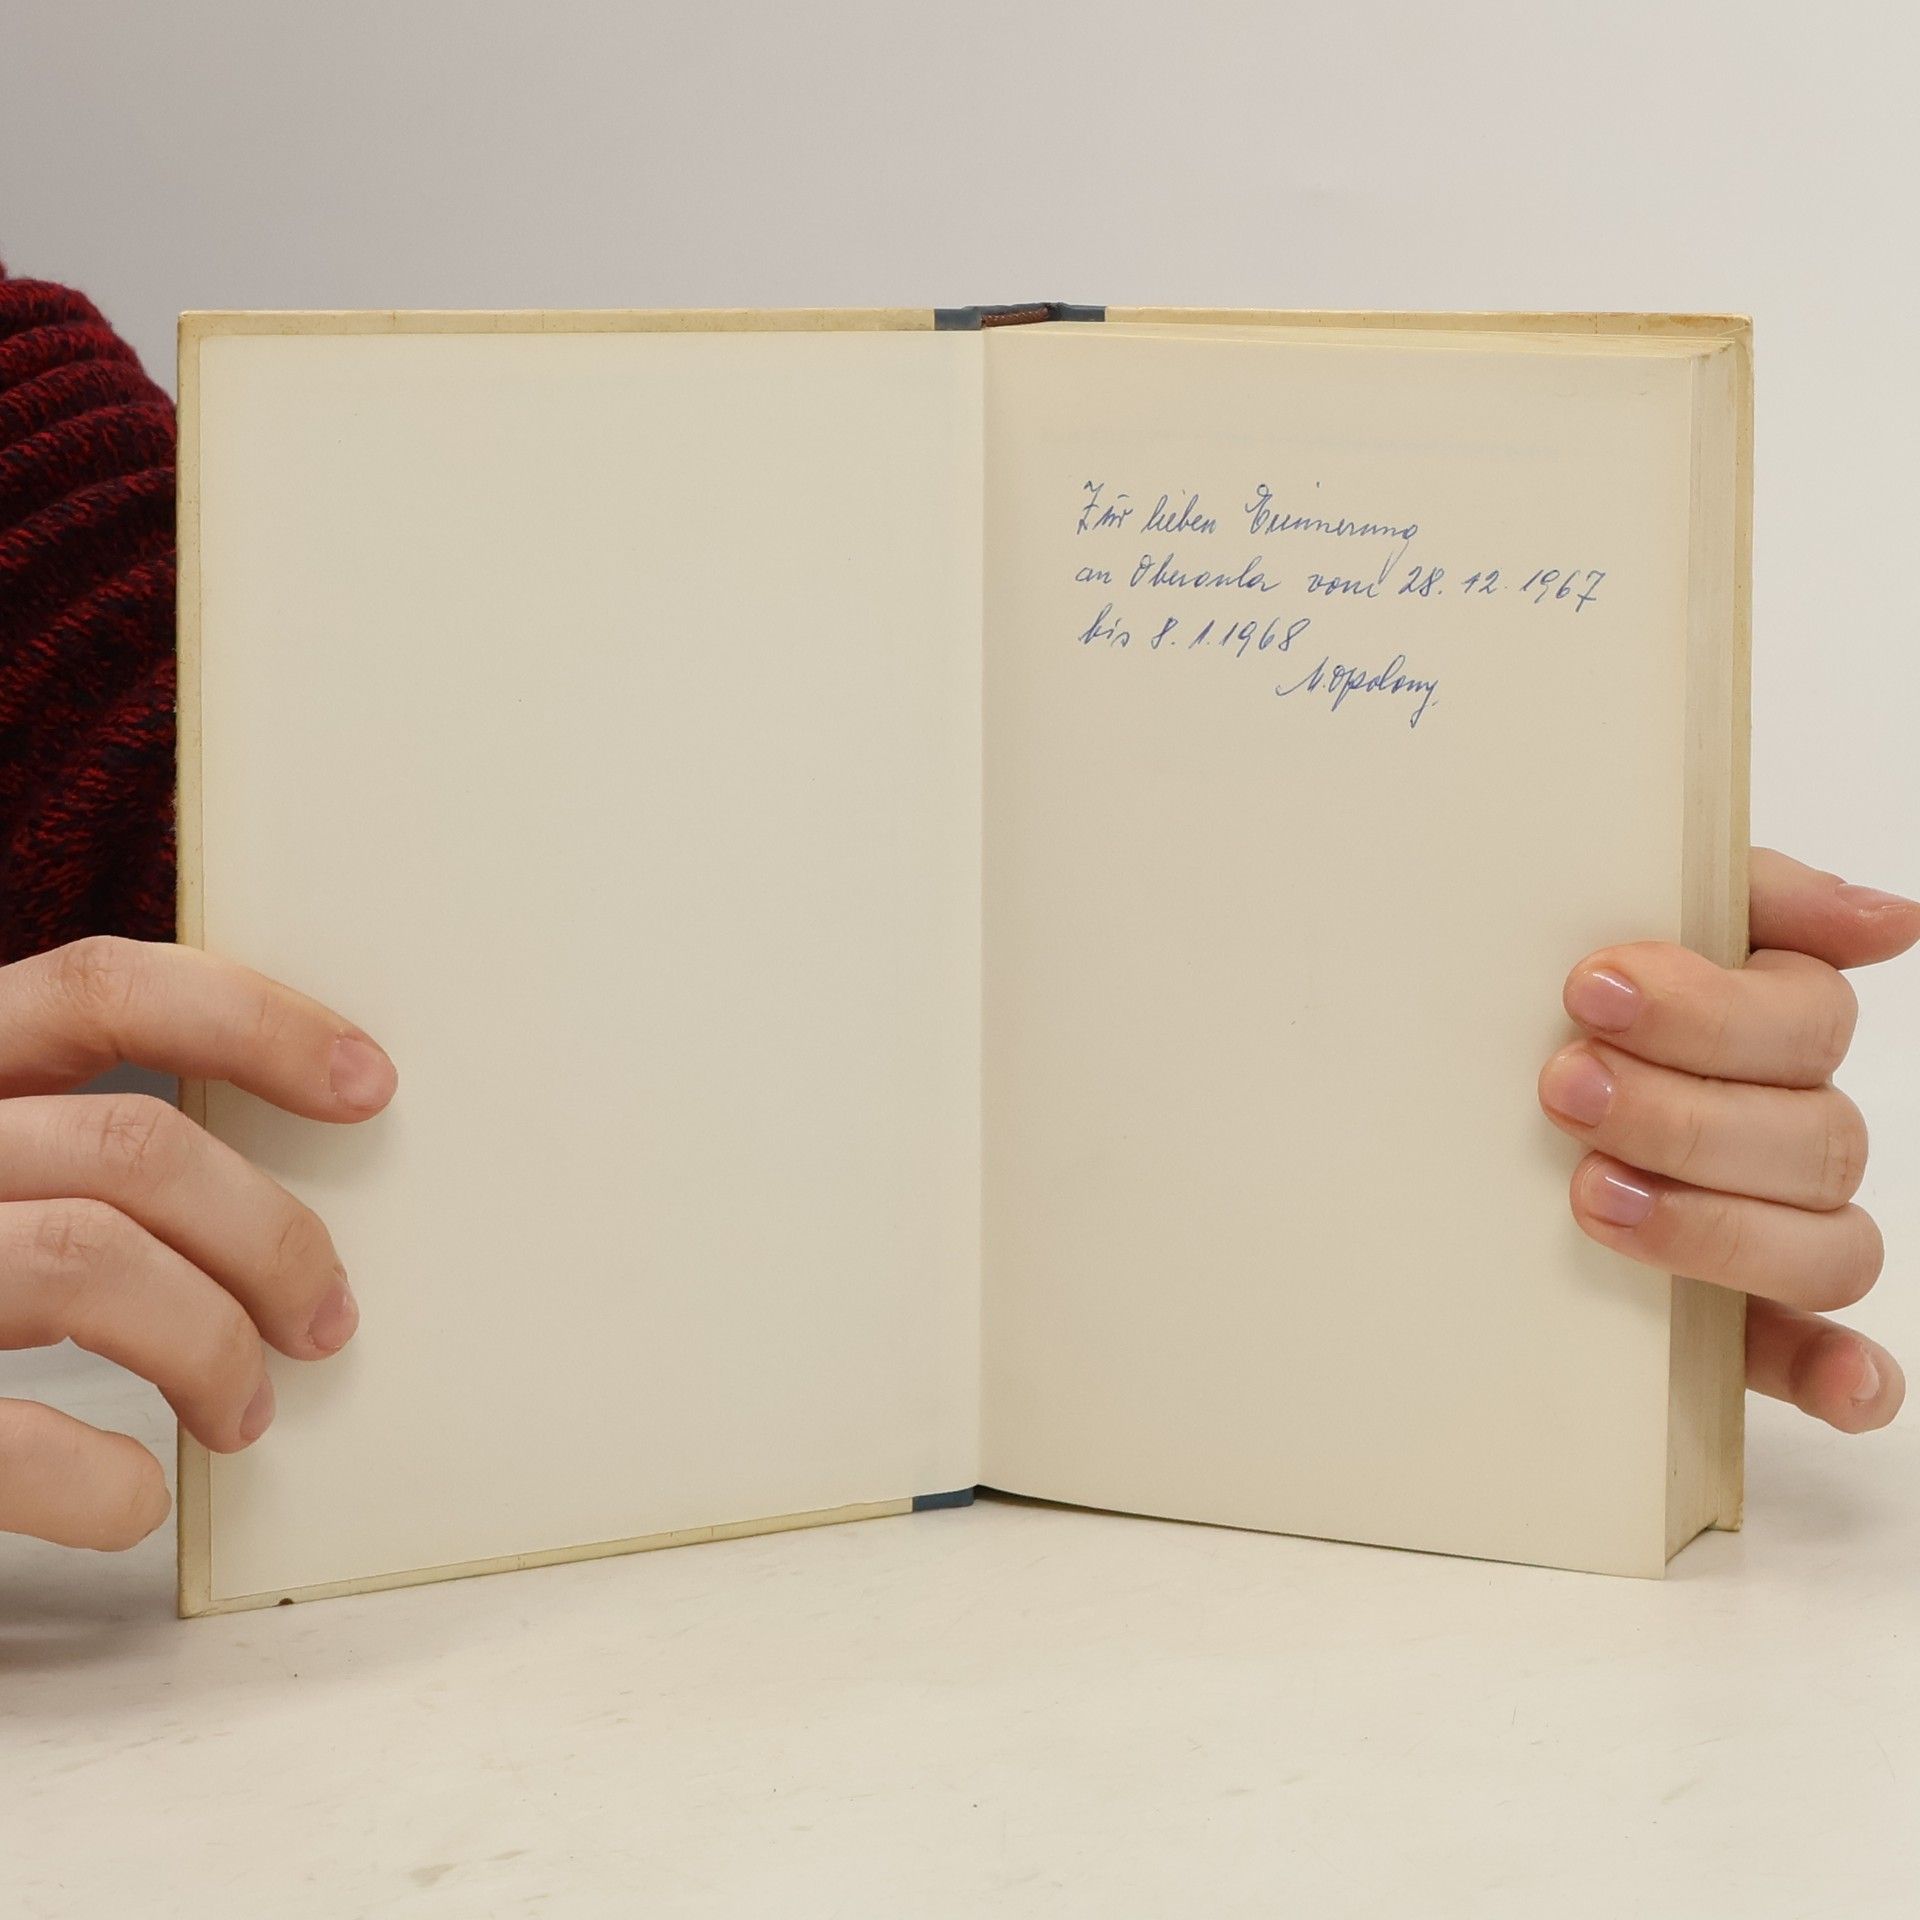 Zur lieben Erinnerung
an Oberaula vom 28. 12. 1967
bis 8. 1. 1968
M. Opolony.